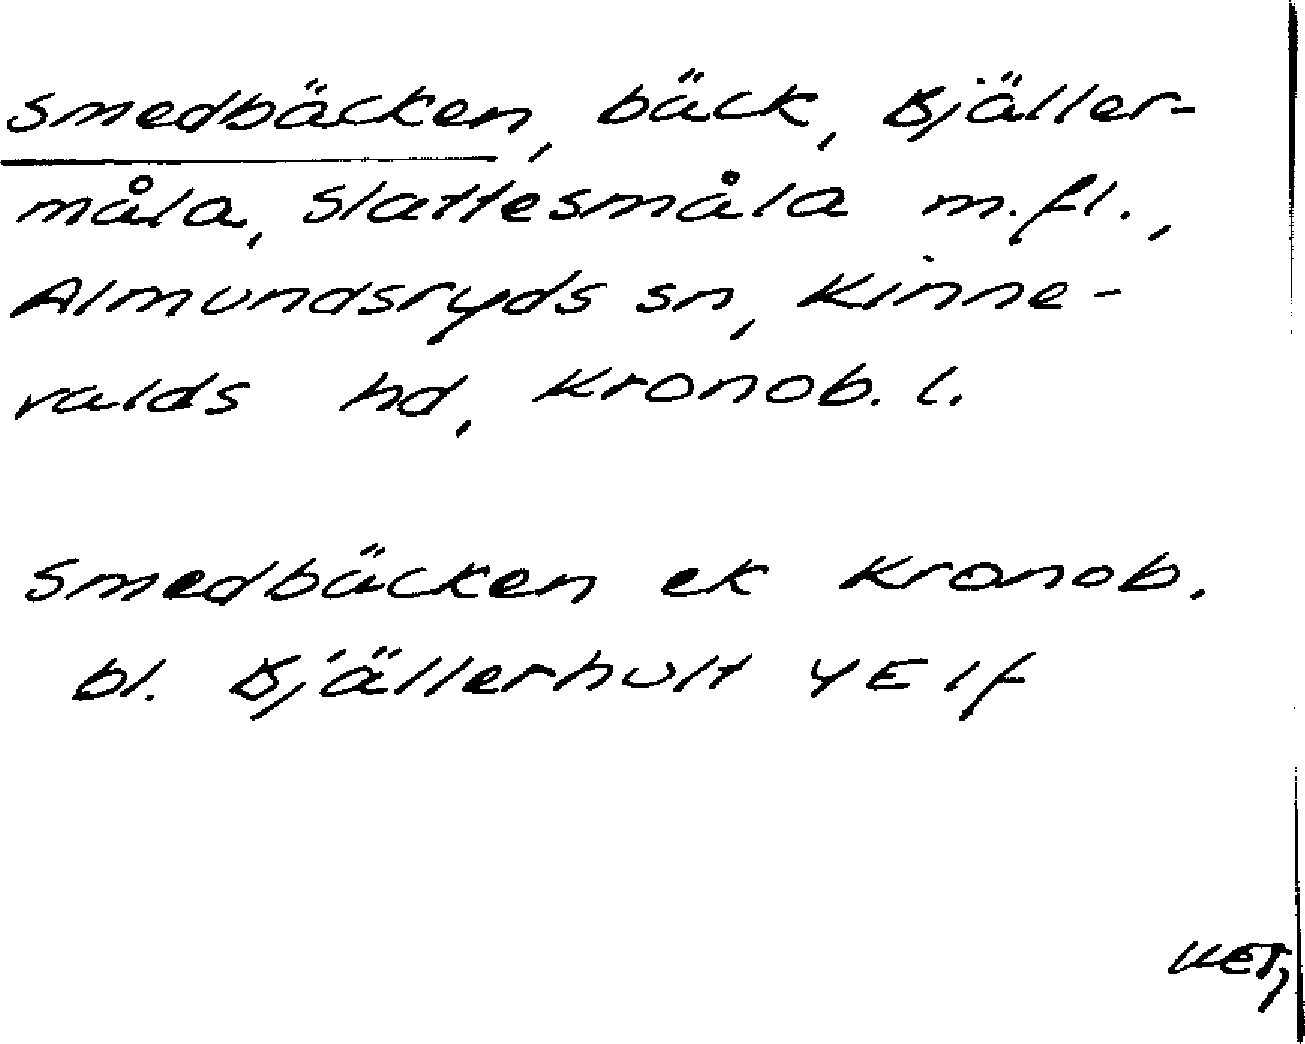 Smedbäcken, bäck, Bjäller-
måla, Slattesmåla m.fl.,
Almundsryds sn, Kinne-
valds hd, Kronob. l.
Smedbäcken ek Kronob.
bl. Bjällerhult 4E 1f